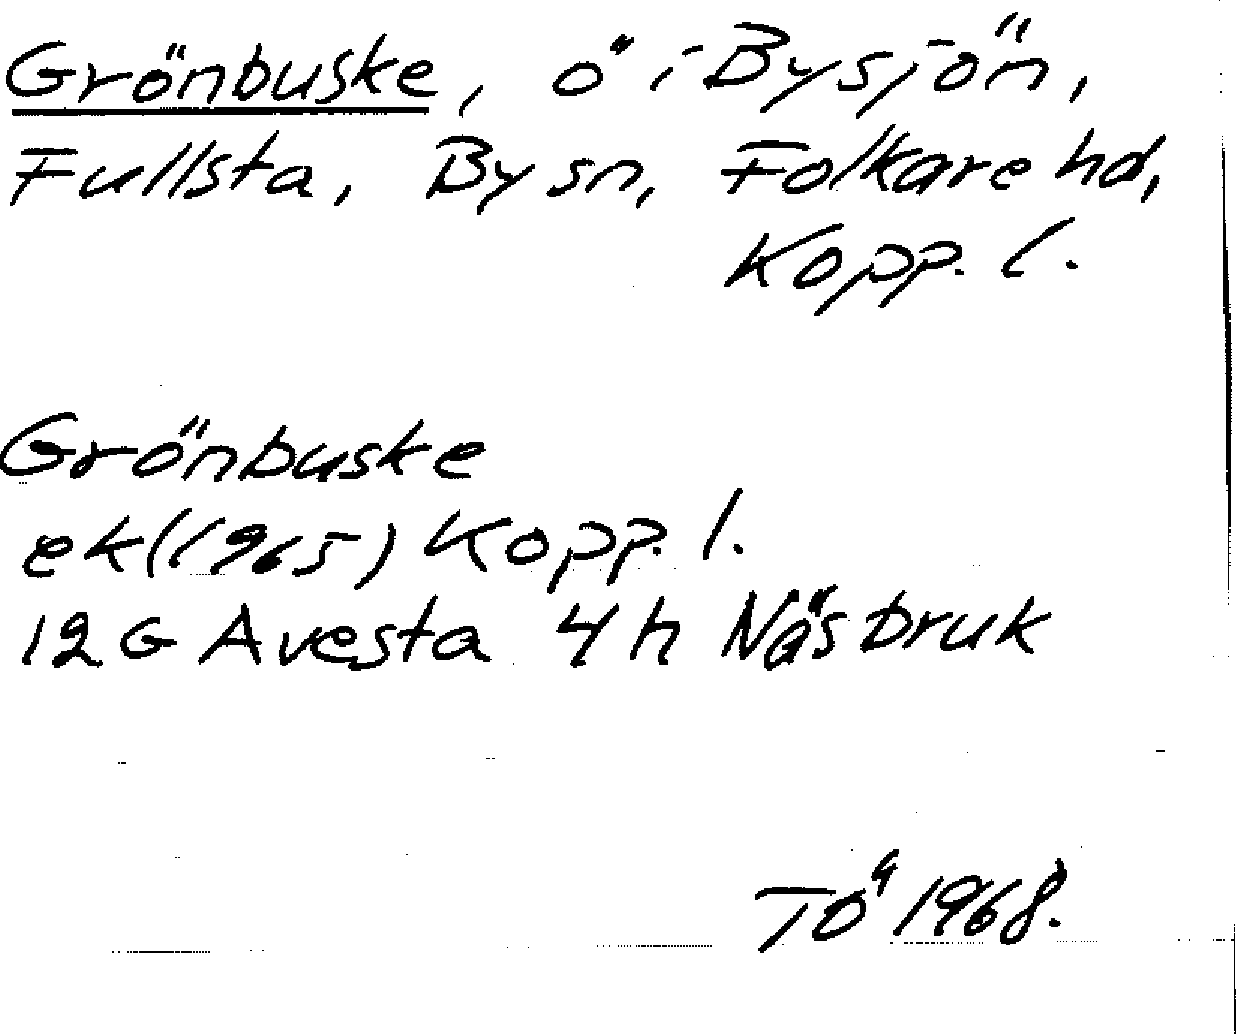 Grönbuske, ö i Bysjön,
Fullsta, By sn, Folkare hd,
Kopp. l.
Grönbuske
ek (1965) Kopp. l.
12 G Avesta 4 h Näs bruk
TÖ 1968.